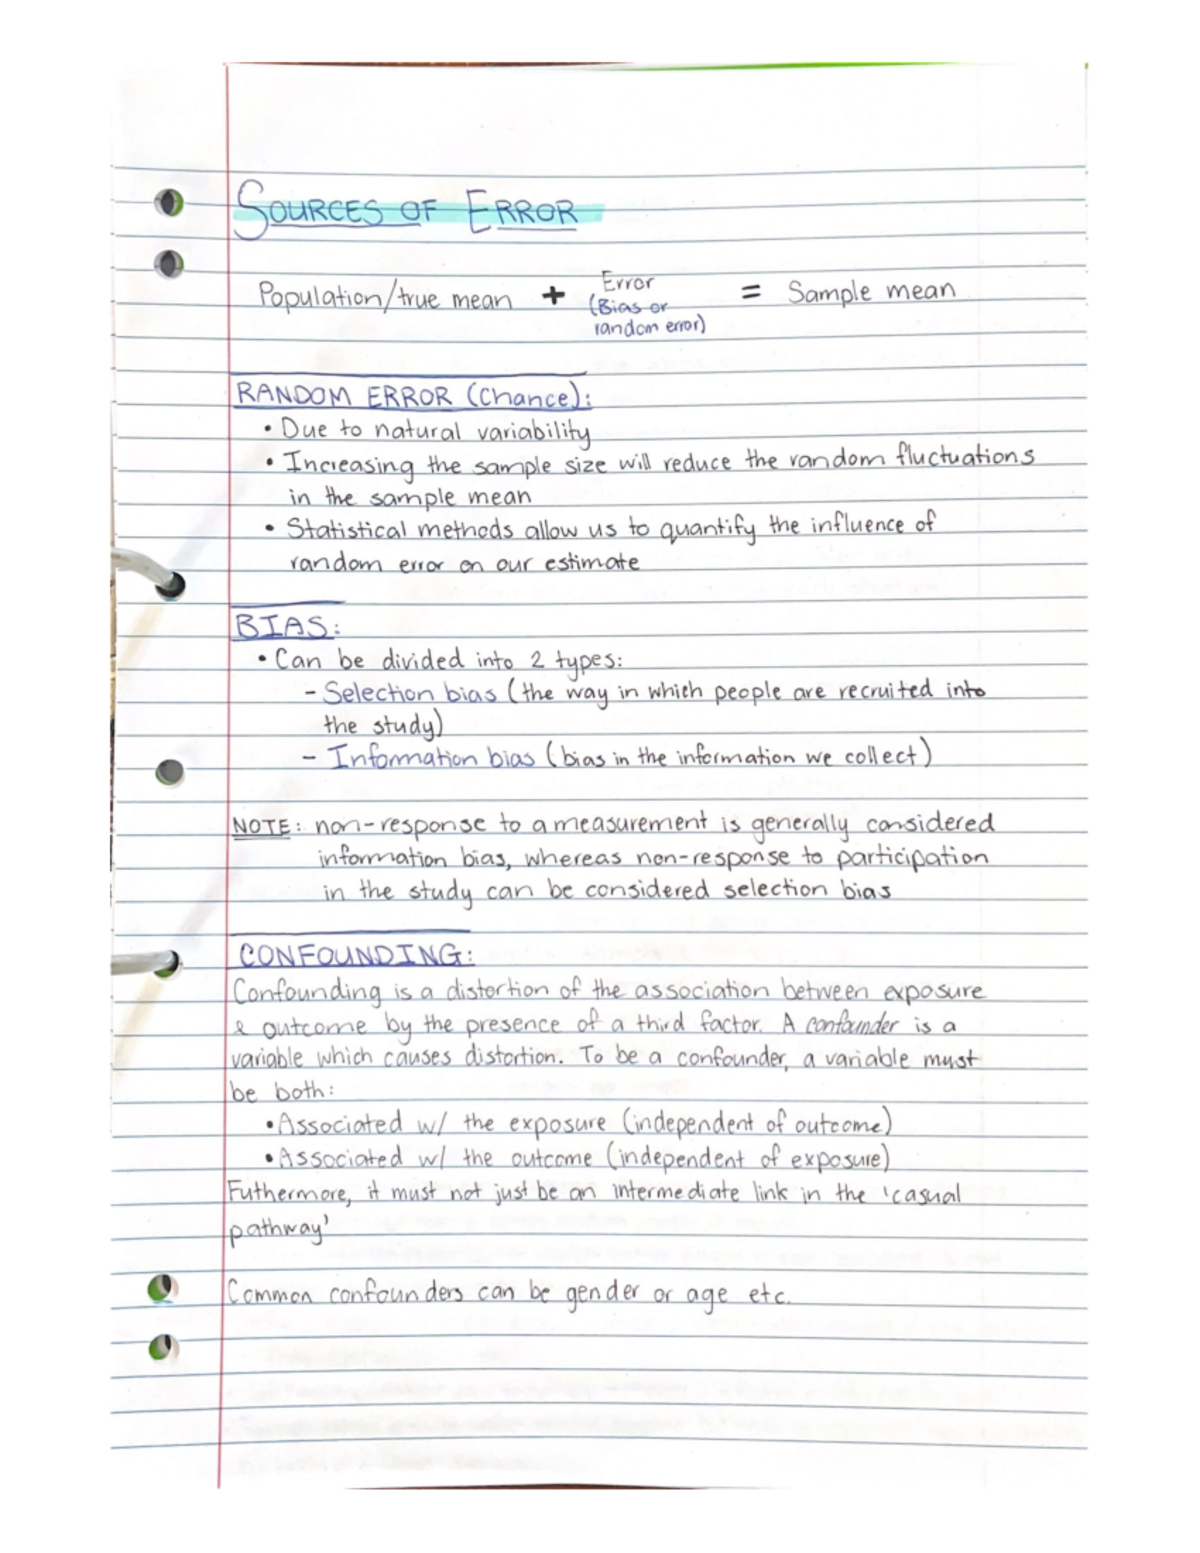 SOURCES OF ERROR
Population/true mean + Error (Bias or random error) = Sample mean
RANDOM ERROR (Chance):
• Due to natural variability
• Increasing the sample size will reduce the random fluctuations
in the sample mean
• Statistical methods allow us to quantify the influence of
random error on our estimate
BIAS:
• Can be divided into 2 types:
- Selection bias (the way in which people are recruited into
the study)
- Information bias (bias in the information we collect)
NOTE: non-response to a measurement is generally considered
information bias, whereas non-response to participation
in the study can be considered selection bias
CONFOUNDING:
Confounding is a distortion of the association between exposure
& outcome by the presence of a third factor. A confounder is a
variable which causes distortion. To be a confounder, a variable must
be both:
• Associated w/ the exposure (independent of outcome)
• Associated w/ the outcome (independent of exposure)
Futhermore, it must not just be an intermediate link in the 'casual
pathway'
Common confounders can be gender or age etc.